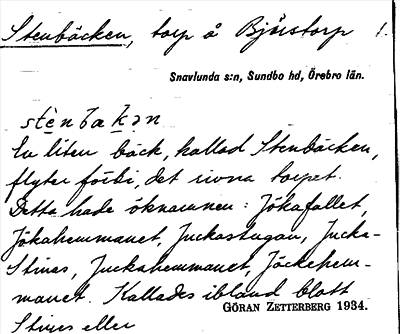 Stenbäcken, torp å Björstorp 1.
Snavlunda s:n, Sundbo hd, Örebro län.
stènbakən
En liten bäck, kallad Stenbäcken,
flyter förbi, det rivna torpet.
Detta hade öknamnen: Jökafallet,
Jökahemmanet, Juckastugan, Jucka-
Stinas, Juckahemmanet, Jäckehem-
manet. Kallades ibland blott
GÖRAN ZETTERBERG 1934.
Stines eller